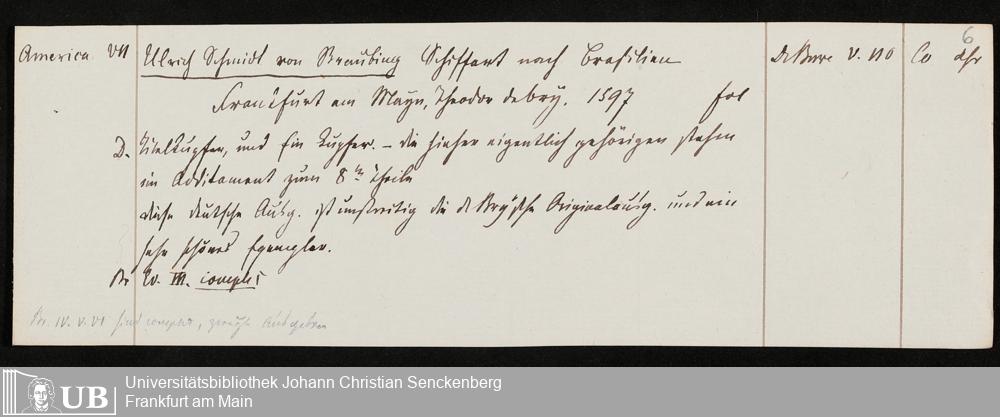 America VII Ulrich Schmidt von Straubing Schiffart nach Brasilien De Bure V. 110 Co 6
Franckfurt am Mayn, Theodor de Bry. 1597 fol
D. Titelkupfer, und Ein Kupfer. – die hieher eigentlich gehörigen stehen
im Additament zum 8ten Theile
diese deutsche Ausg. ist unstreitig die de Brysche Originalausg. und ein
sehr schönes Exemplar.
Br VII. complet
Br. IV. V. VI sind complet, Ausgaben
UB Universitätsbibliothek Johann Christian Senckenberg
Frankfurt am Main